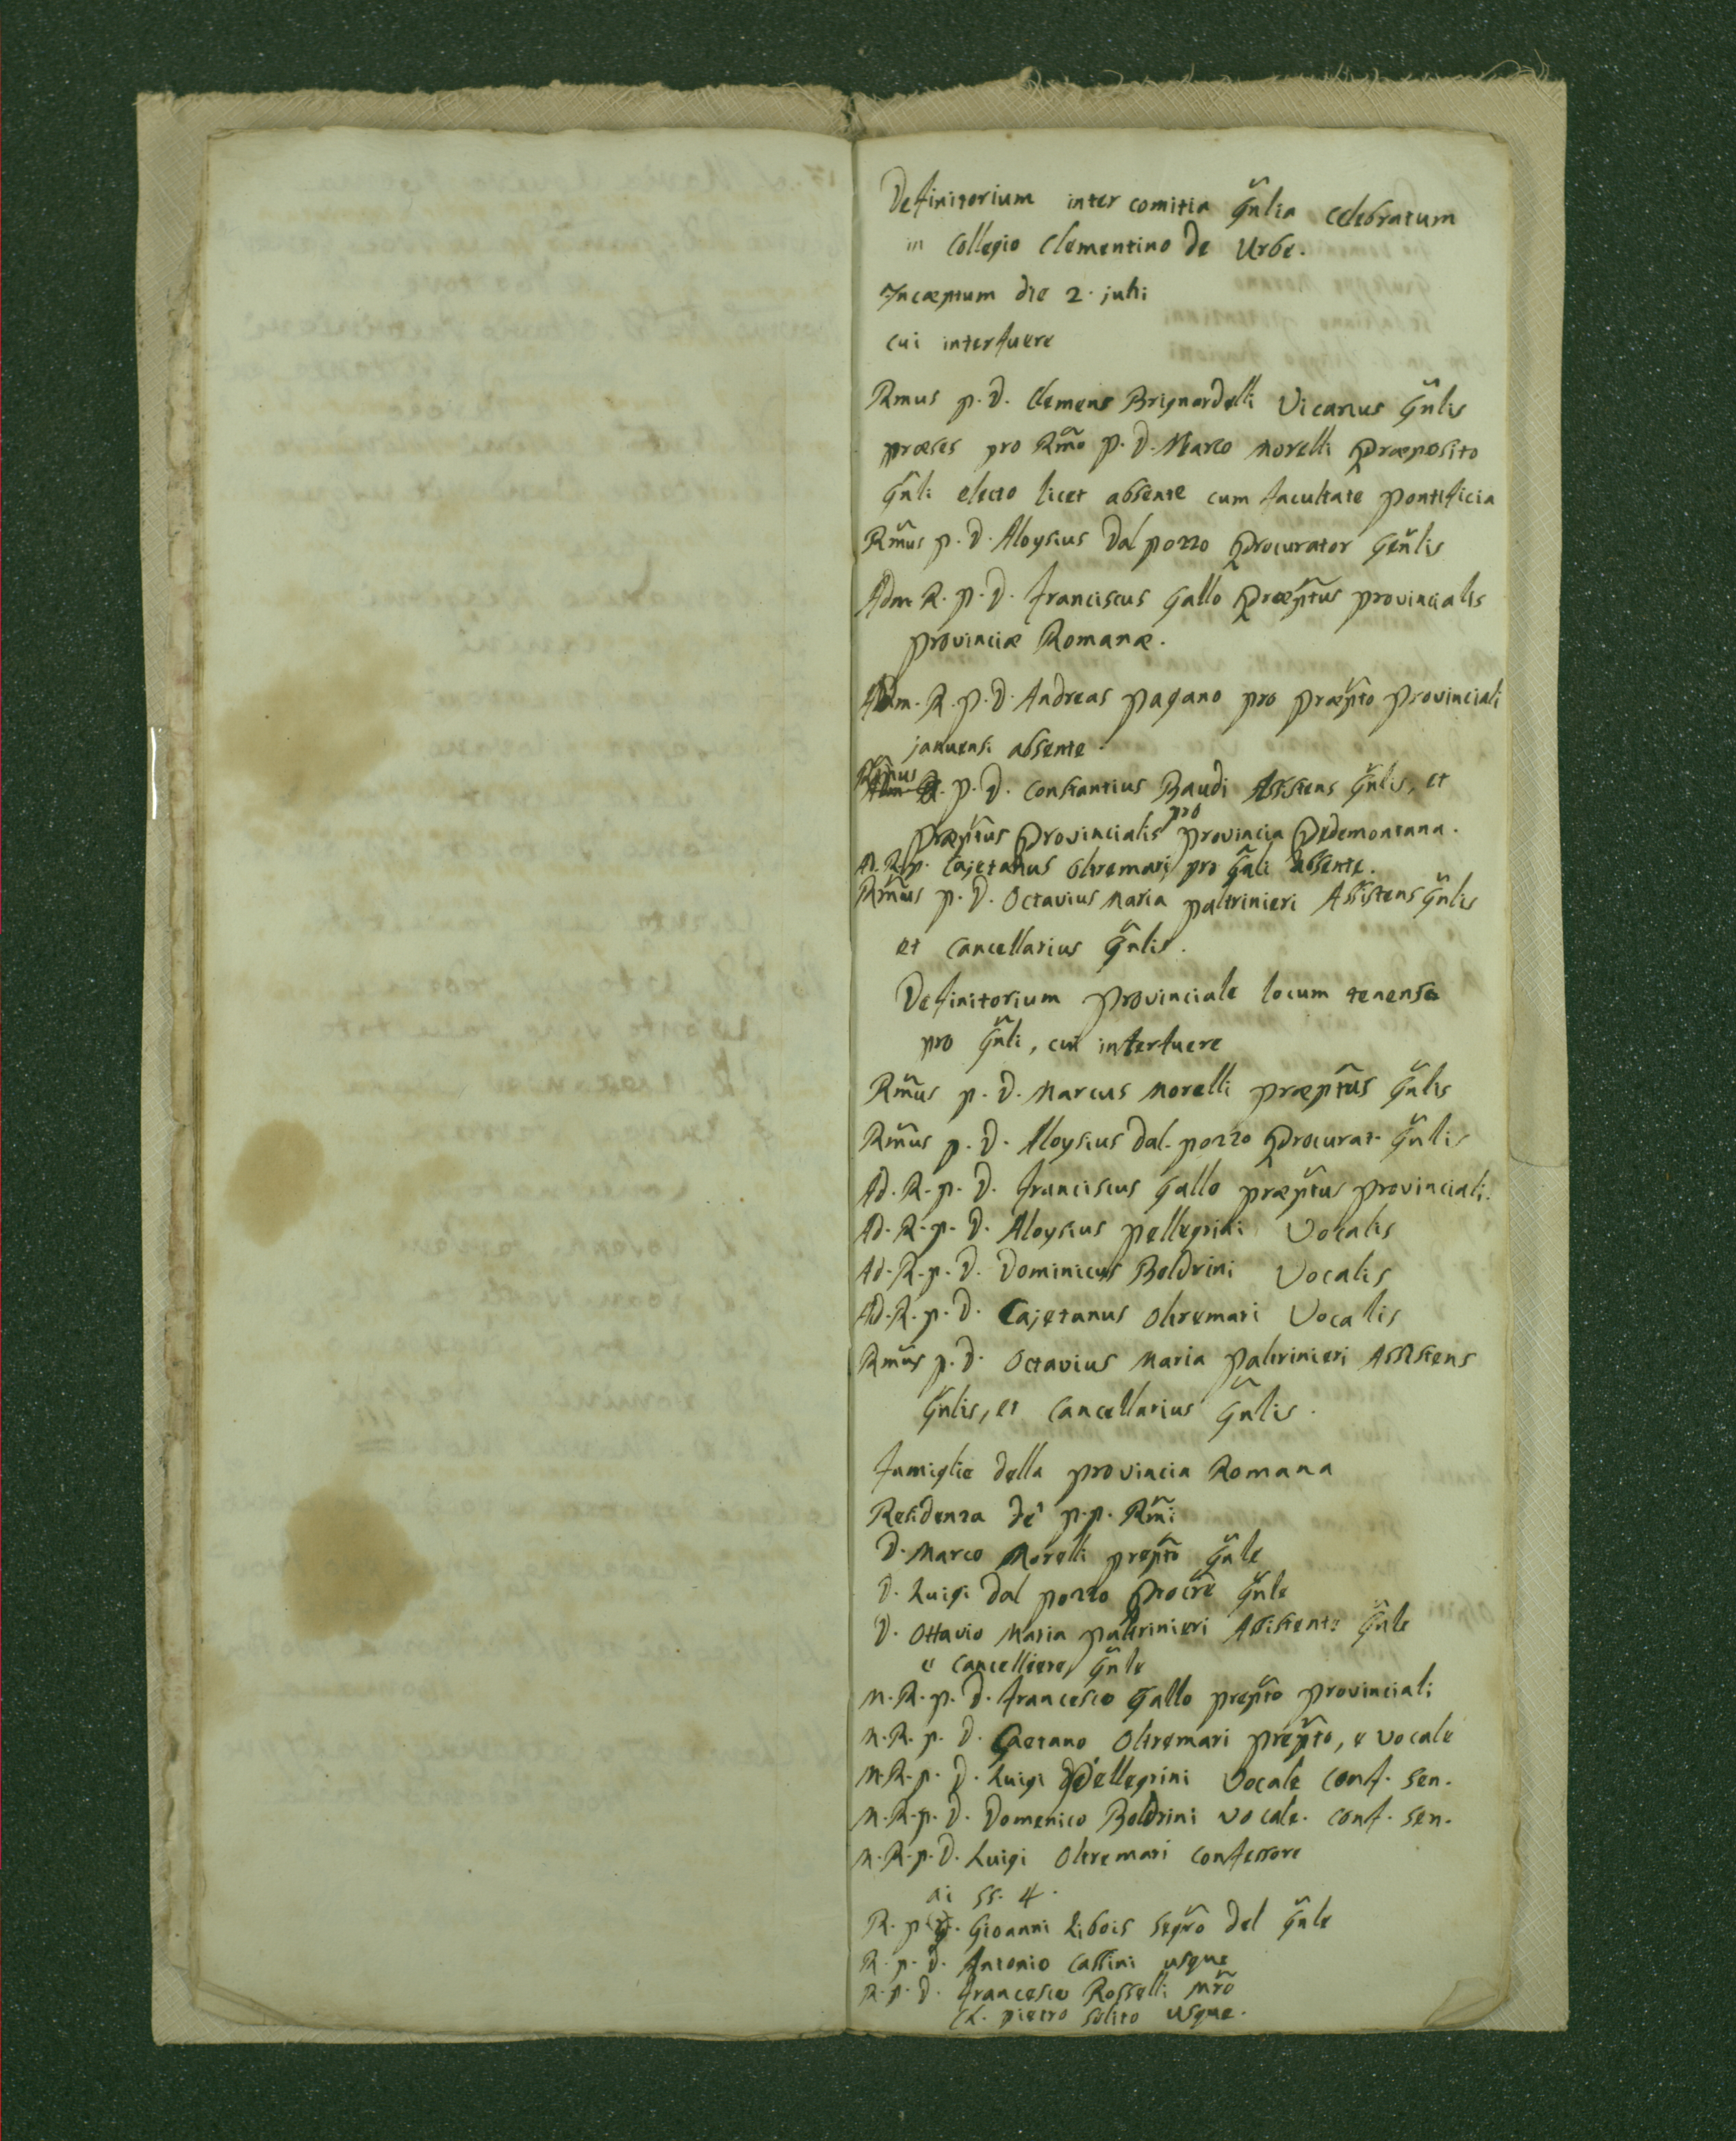 Definitorium inter comitia Gñlia celebratum
in Collegio Clementino de Urbe.
Incæptum die 2. julii
cui interfuere
Rmus p. D. Clemens Brignardelli Vicarius Gñlis
præses pro Rm̃o p. D. Marco Morelli Præposito
Gñli electo licet absente cum facultate Pontificia
Rm̃us p. D. Aloysius Dal pozzo Procurator Geñlis
Adm. R. p. D. Franciscus Gallo Præp̃tus provincialis
provinciæ Romanæ.
Adm. R. p. D. Andreas pagano pro præp̃to provinciali
januensi absente.
Rm̃us p. D. Constantius Baudi Assistens Gñlis, et
præp̃tus Provincialis pro provincia Pedemontana.
A. R. p. Cajetanus Oltremari pro Gñli absente.
Rm̃us p. D. Octavius Maria paltrinieri Assistens Gñlis
et Cancellarius Gñlis.
Definitorium provinciale locum tenens
pro Gñli, cui interfuere
Rm̃us p. D. Marcus Morelli præp̃tus Gñlis
Rm̃us p. D. Aloysius Dal. pozzo Procurat. Gñlis
Ad. R. p. D. Franciscus Gallo præp̃tus provinciali.
Ad. R. p. D. Aloysius pellegrini Vocalis
Ad. R. p. D. Dominicus Boldrini Vocalis
Ad. R. p. D. Cajetanus Oltremari Vocalis
Rm̃us p. D. Octavius Maria paltrinieri Assistens
Gñlis, et Cancellarius Gñlis.
Famiglie della provincia Romana
Residenza de' p.p. Rm̃i
D. Marco Morelli prep̃to Gñle
D. Luigi dal pozzo Procr̃e Gñle
D. Ottavio Maria paltrinieri Assistente Gñle
e Cancelliere Gñle
M. R. p. D. Francesco Gallo prep̃to provinciali
M. R. p. D. Gaetano Oltremari prep̃to, e vocale
M. R. p. D. Luigi Pellegrini Vocale conf. sen.
M. R. p. D. Domenico Boldrini vocale. conf. sen.
M. R. p. D. Luigi Oltremari confessore
ai ss. 4.
R. p. D. Gioanni Libois segr̃o del Gñle
R. p. D. Antonio Cassini usque
R. p. D. Francesco Rosselli Mr̃o
Ch. pietro Solito usque.